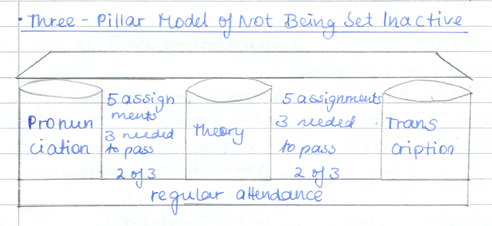 • Three-Pillar Model of Not Being Set Inactive
Pronun
ciation
5 assign
ments
3 needed
to pass
2 of 3
Theory
5 assignments
3 needed
to pass
2 of 3
Trans
cription
regular attendance